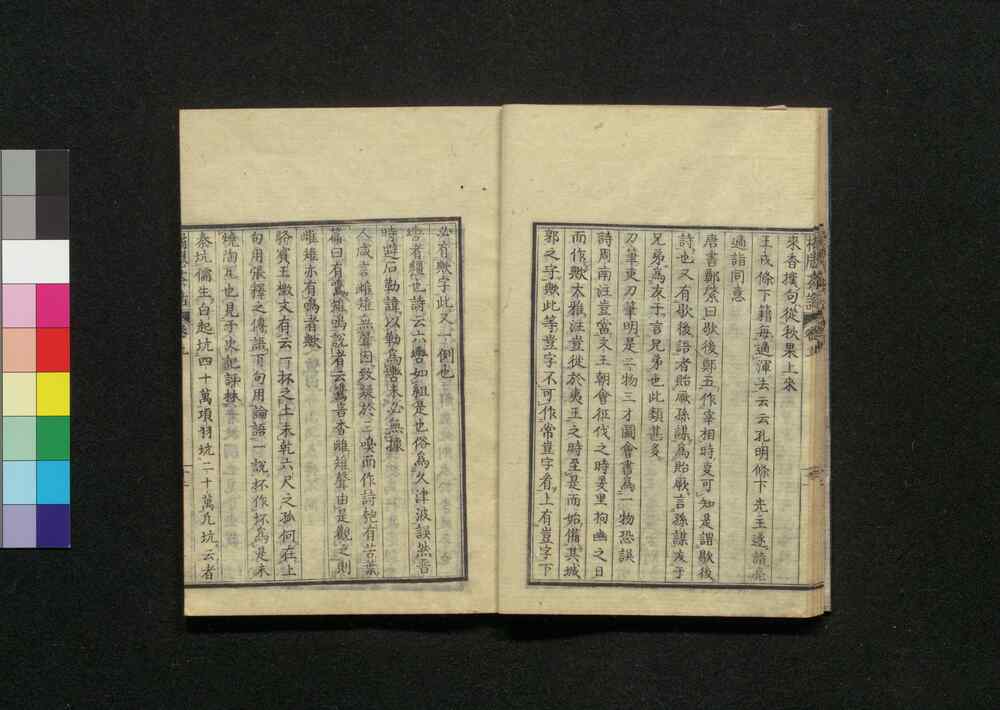 來香撲句從秋果上來
王戎條下籍每適渾去云云孔明條下先主遂詣亮
適詣同意
唐書鄭綮曰歇後鄭五作宰相時事可知是謂歇後
詩也又有歇後語者貽厥孫謀爲貽厥言孫謀友于
兄弟爲友于言兄弟也此類甚多
刀筆吏刀筆明是二物三才圖會書爲一物恐誤
詩周南注豈當文王朝會征伐之時羑里拘幽之日
而作歟大雅注豈徙於夷王之時至是而始備其城
郭之守歟此等豈字不可作常豈字看上有豈字下
必有歟字此又一例也
轡者韁也詩云六轡如組是也俗爲久津波誤然晋
時避石勒諱以勒爲轡未必無據
人咸言雌雉無聲因致疑於三嗅而作詩匏有苦葉
篇曰有鷕雉鳴說者云鷕音杳雌雉聲由是觀之則
雌雉亦有鳴者歟
駱賓王檄文有云一抔之土未乾六尺之孤何在上
句用張釋之傳語下句用論語一說抔作坏爲是未
燒陶瓦也見于史記評林
秦坑儒生白起坑四十萬項羽坑二十萬凡坑云者